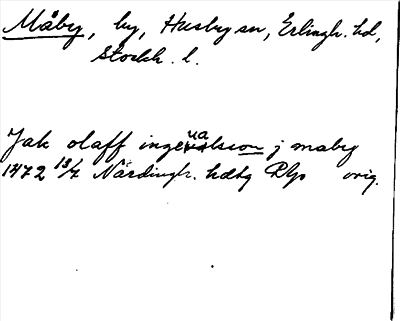 Måby, by, Husby sn, Erlingh. hd,
Stockh. l.
Jak olaff ingeualsson j maby
1472 13/7 Närdingh. hdtg Plp orig.